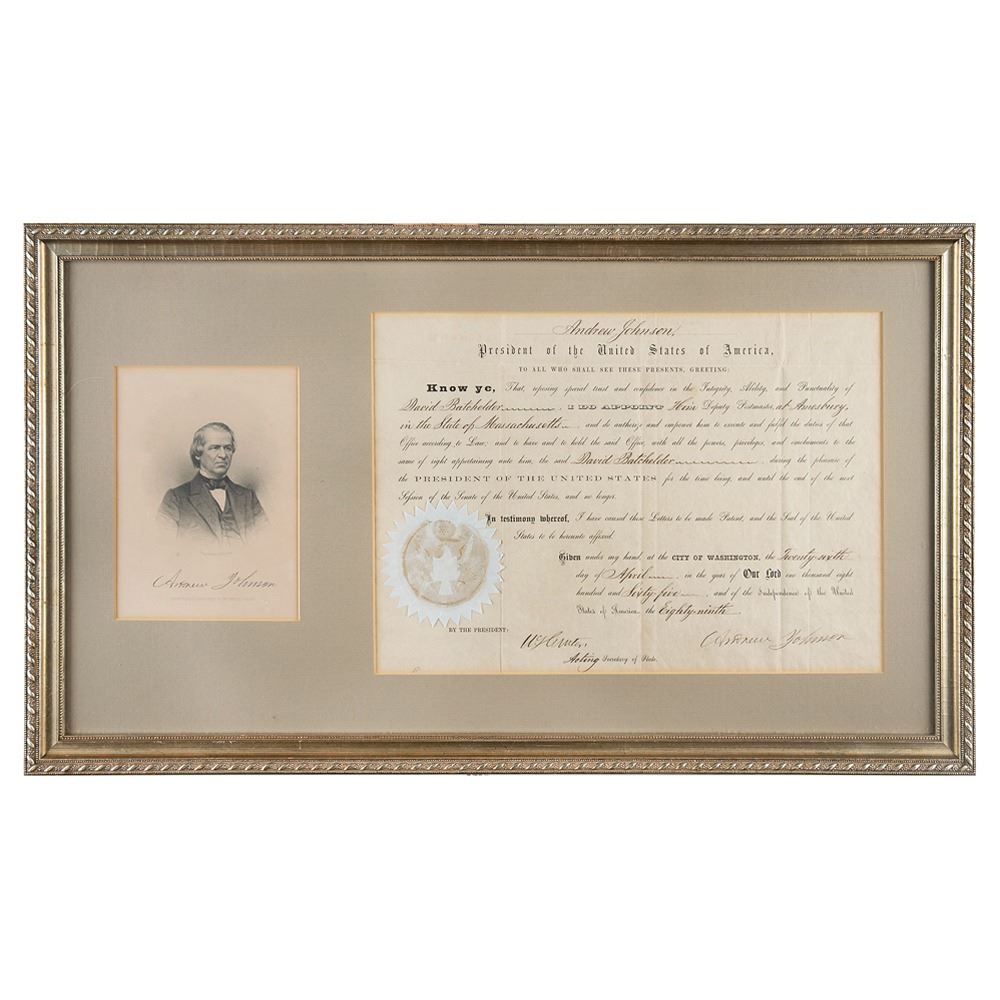 Andrew Johnson
Andrew Johnson,
President of the United States of America,
TO ALL WHO SHALL SEE THESE PRESENTS, GREETING:
Know ye, That, reposing special trust and confidence in the Integrity, Ability, and Punctuality of
David Batchelder, I DO APPOINT Him Deputy Postmaster, at Amesbury,
in the State of Massachusetts and do authorize and empower him to execute and fulfil the duties of that
Office according to Law; and to have and to hold the said Office, with all the powers, privileges, and emoluments to the
same of right appertaining unto him, the said David Batchelder, during the pleasure of
the PRESIDENT OF THE UNITED STATES for the time being, and until the end of the next
Session of the Senate of the United States, and no longer.
In testimony whereof, I have caused these Letters to be made Patent, and the Seal of the United
States to be hereunto affixed.
Given under my hand, at the CITY OF WASHINGTON, the Twenty sixth
day of April, in the year of Our Lord one thousand eight
hundred and Sixty-five, and of the Independence of the United
States of America the Eighty-ninth.
BY THE PRESIDENT:
W Hunter, Andrew Johnson
Acting Secretary of State.